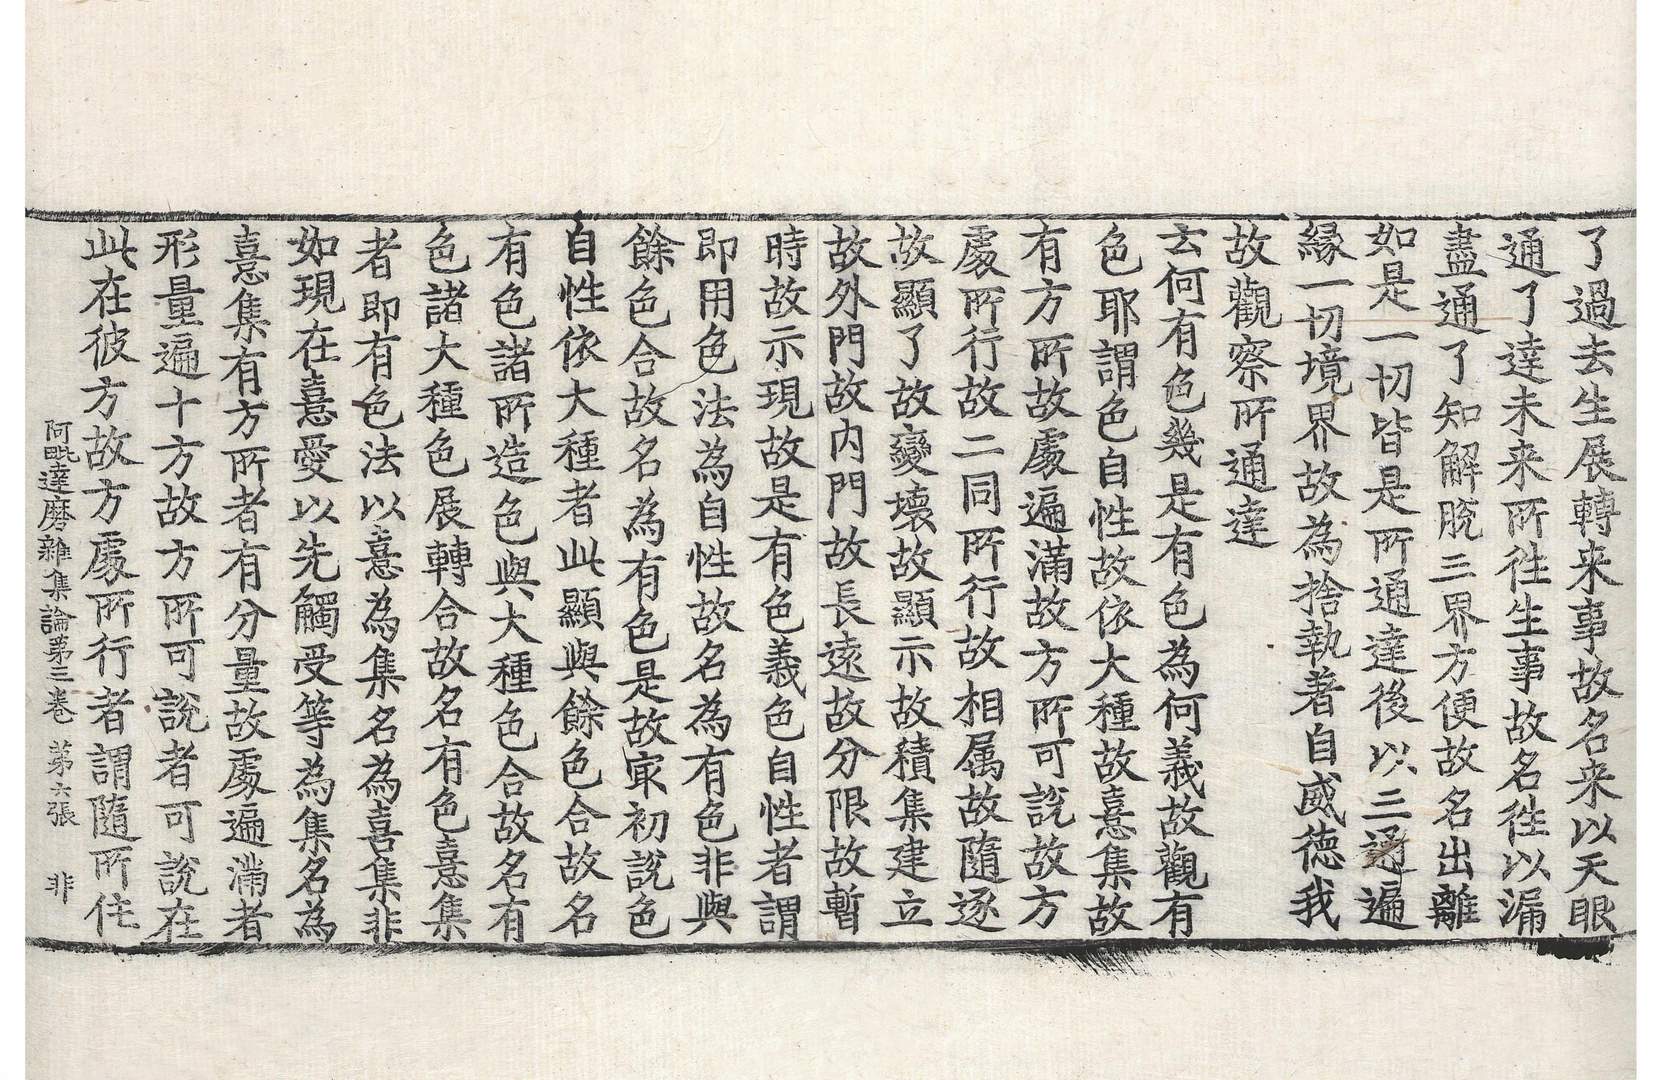 了過去生展轉来事故名来以天眼
通了達未来所徃生事故名徃以漏
盡通了知解脫三界方便故名出離
如是一切皆是所通達後以三通遍
緣一切境界故為捨執著自威徳我
故觀察所通達
云何有色幾是有色為何義故觀有
色耶謂色自性故依大種故憙集故
有方所故處遍滿故方所可說故方
處所行故二同所行故相属故隨逐
故顯了故變壞故顯示故積集建立
故外門故内門故長遠故分限故暫
時故示現故是有色義色自性者謂
即用色法為自性故名為有色非與
餘色合故名為有色是故㝡初說色
自性依大種者此顯與餘色合故名
有色諸所造色與大種色合故名有
色諸大種色展轉合故名有色憙集
者即有色法以憙為集名為喜集非
如現在憙愛以先觸受等為集名為
憙集有方所者有分量故處遍滿者
形量遍十方故方所可說者可說在
此在彼方故方處所行者謂隨所住
阿毗達磨雜集論第三卷 第六張 非